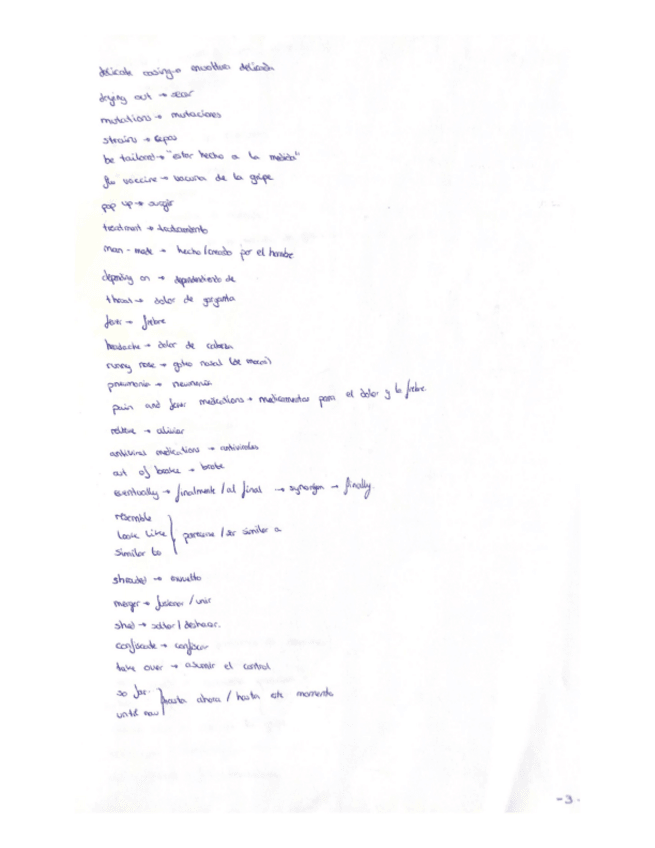 delicate casing → envoltura delicada
drying out → secar
mutations → mutaciones
strains → cepas
be tailored → "estar hecho a la medida"
flu vaccine → vacuna de la gripe
pop up → surgir
treatment → tratamiento
man-made → hecho/creado por el hombre
depending on → dependiendo de
throat → dolor de garganta
fever → fiebre
headache → dolor de cabeza
runny nose → goteo nasal (de moco)
pneumonia → neumonía
pain and fever medications → medicamentos para el dolor y la fiebre
relieve → aliviar
antiviral medications → antivirales
out of → brote
eventually → finalmente/al final → synonym → finally.
resemble
look like } parecerse/ser similar a
similar to
→ envuelto
merger → fusionar/unir
shed → soltar/deshacer.
confiscate → confiscar
take over → asumir el control
so far
until now } hasta ahora / hasta este momento
-3-